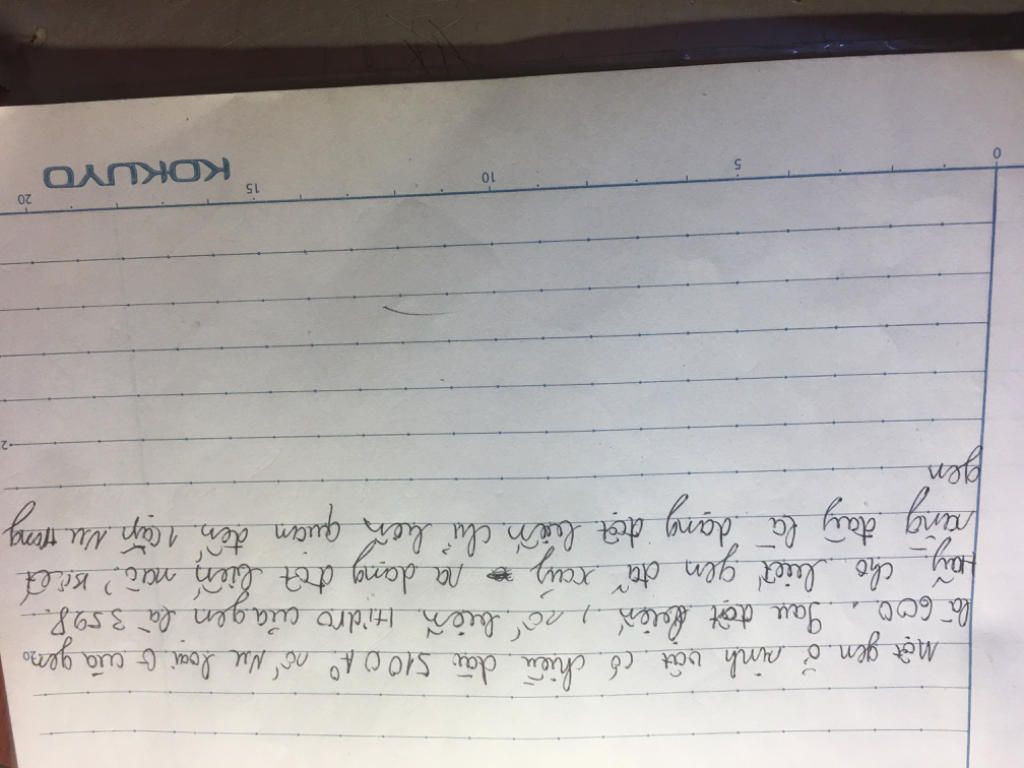 Một gen ở sinh vật có chiều dài 5100 A° số Nu loại G của gen
là 600. Sau đột biến, số liên Hidro của gen là 3598.
Hãy cho biết gen đã xảy ra dạng đột biến nào? Biết
rằng đây là dạng đột biến chỉ liên quan đến 1 cặp Nu trong
gen
2
0 5 10 15 20
KOKUYO